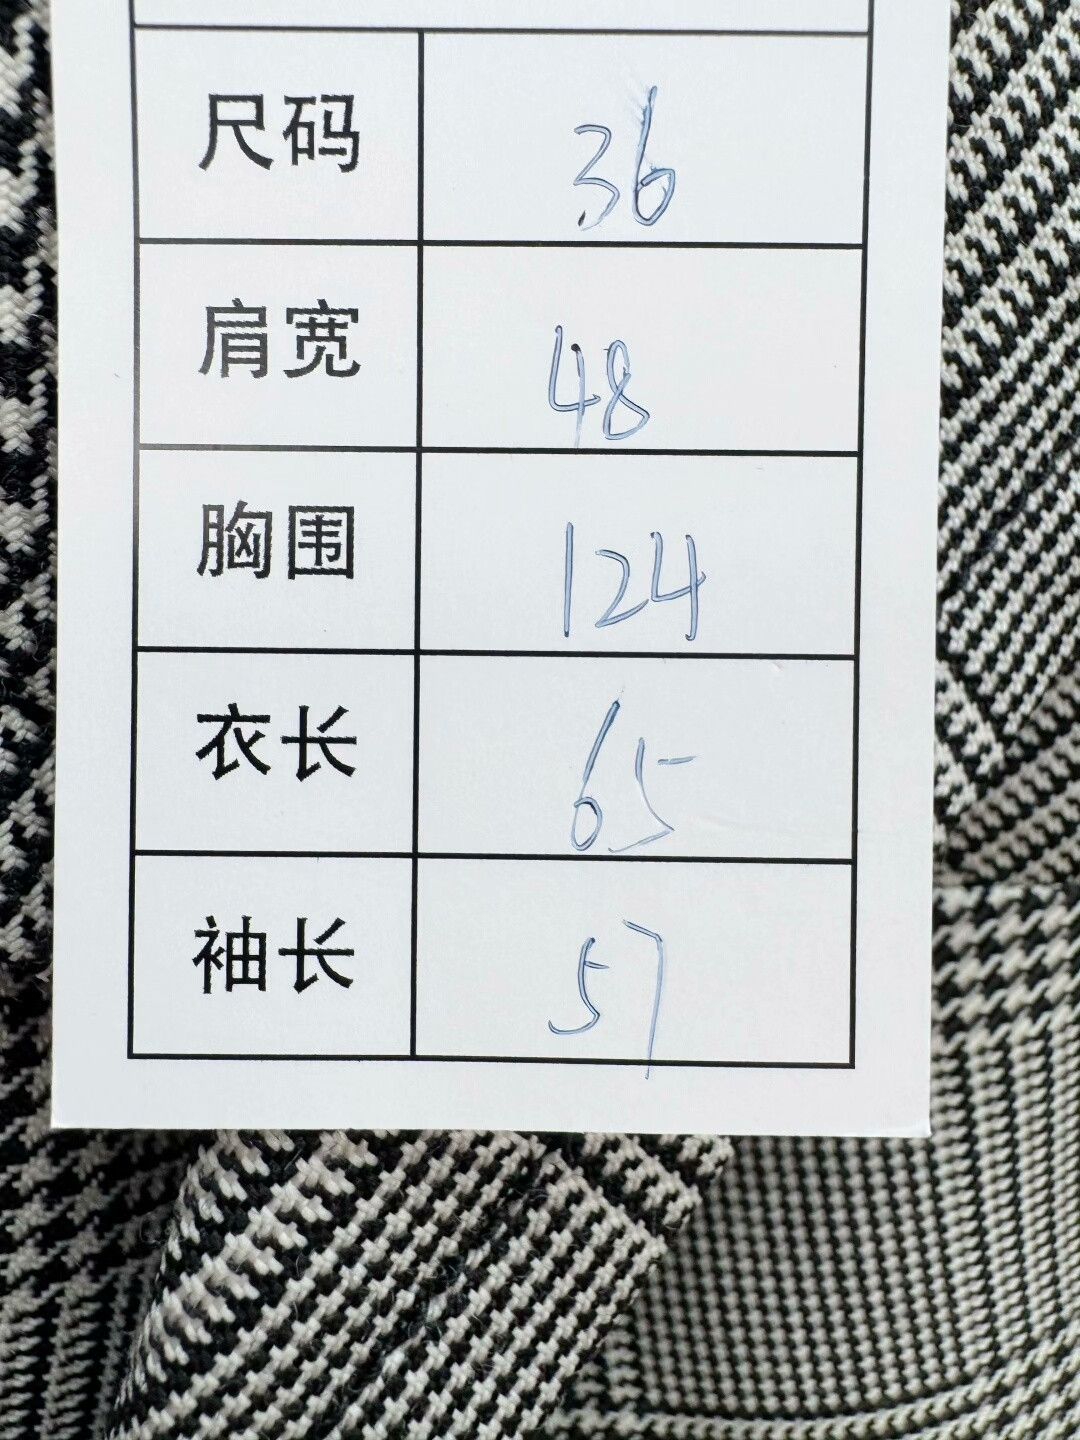 尺码 36
肩宽 48
胸围 124
衣长 65
袖长 57